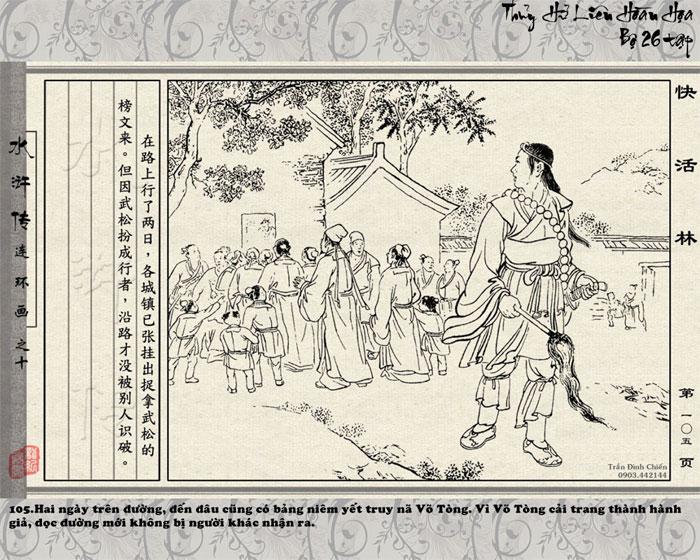 Thủy Hử Liên Hoàn Họa
Bộ 26 tập
快活林
第一〇五页
在路上行了两日，各城镇已张挂出捉拿武松的
榜文来。但因武松扮成行者，沿路才没被别人识破。
水浒传连环画之十
Trần Đình Chiến
0903.442144
105.Hai ngày trên đường, đến đâu cũng có bảng niêm yết truy nã Võ Tòng. Vì Võ Tòng cải trang thành hành
giả, dọc đường mới không bị người khác nhận ra.